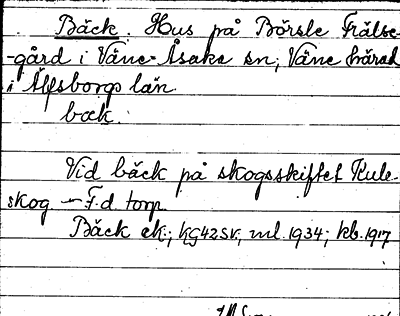 Bäck. Hus på Börsle Frälse-
-gård i Väne-Åsaka sn; Väne härad
i Älfsborgs län.
bæk.
Vid bäck på skogsskiftet Kule-
skog – F.d torp.
Bäck ek.; kg42sv; ml.1934; kb.1917